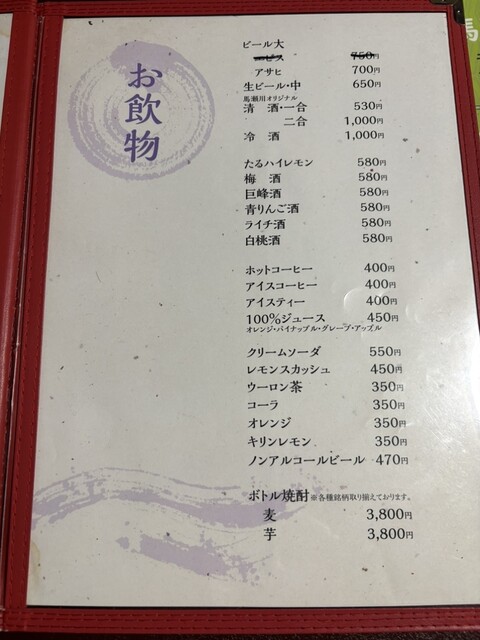 お飲物
ビール大
ビス 750円
アサヒ 700円
生ビール・中 650円
馬瀬川オリジナル
清 酒・一合 530円
二合 1,000円
冷 酒 1,000円
たるハイレモン 580円
梅 酒 580円
巨峰酒 580円
青りんご酒 580円
ライチ酒 580円
白桃酒 580円
ホットコーヒー 400円
アイスコーヒー 400円
アイスティー 400円
100%ジュース 450円
オレンジ・パイナップル・グレープ・アップル
クリームソーダ 550円
レモンスカッシュ 450円
ウーロン茶 350円
コーラ 350円
オレンジ 350円
キリンレモン 350円
ノンアルコールビール 470円
ボトル焼酎 ※各種銘柄取り揃えております。
麦 3,800円
芋 3,800円